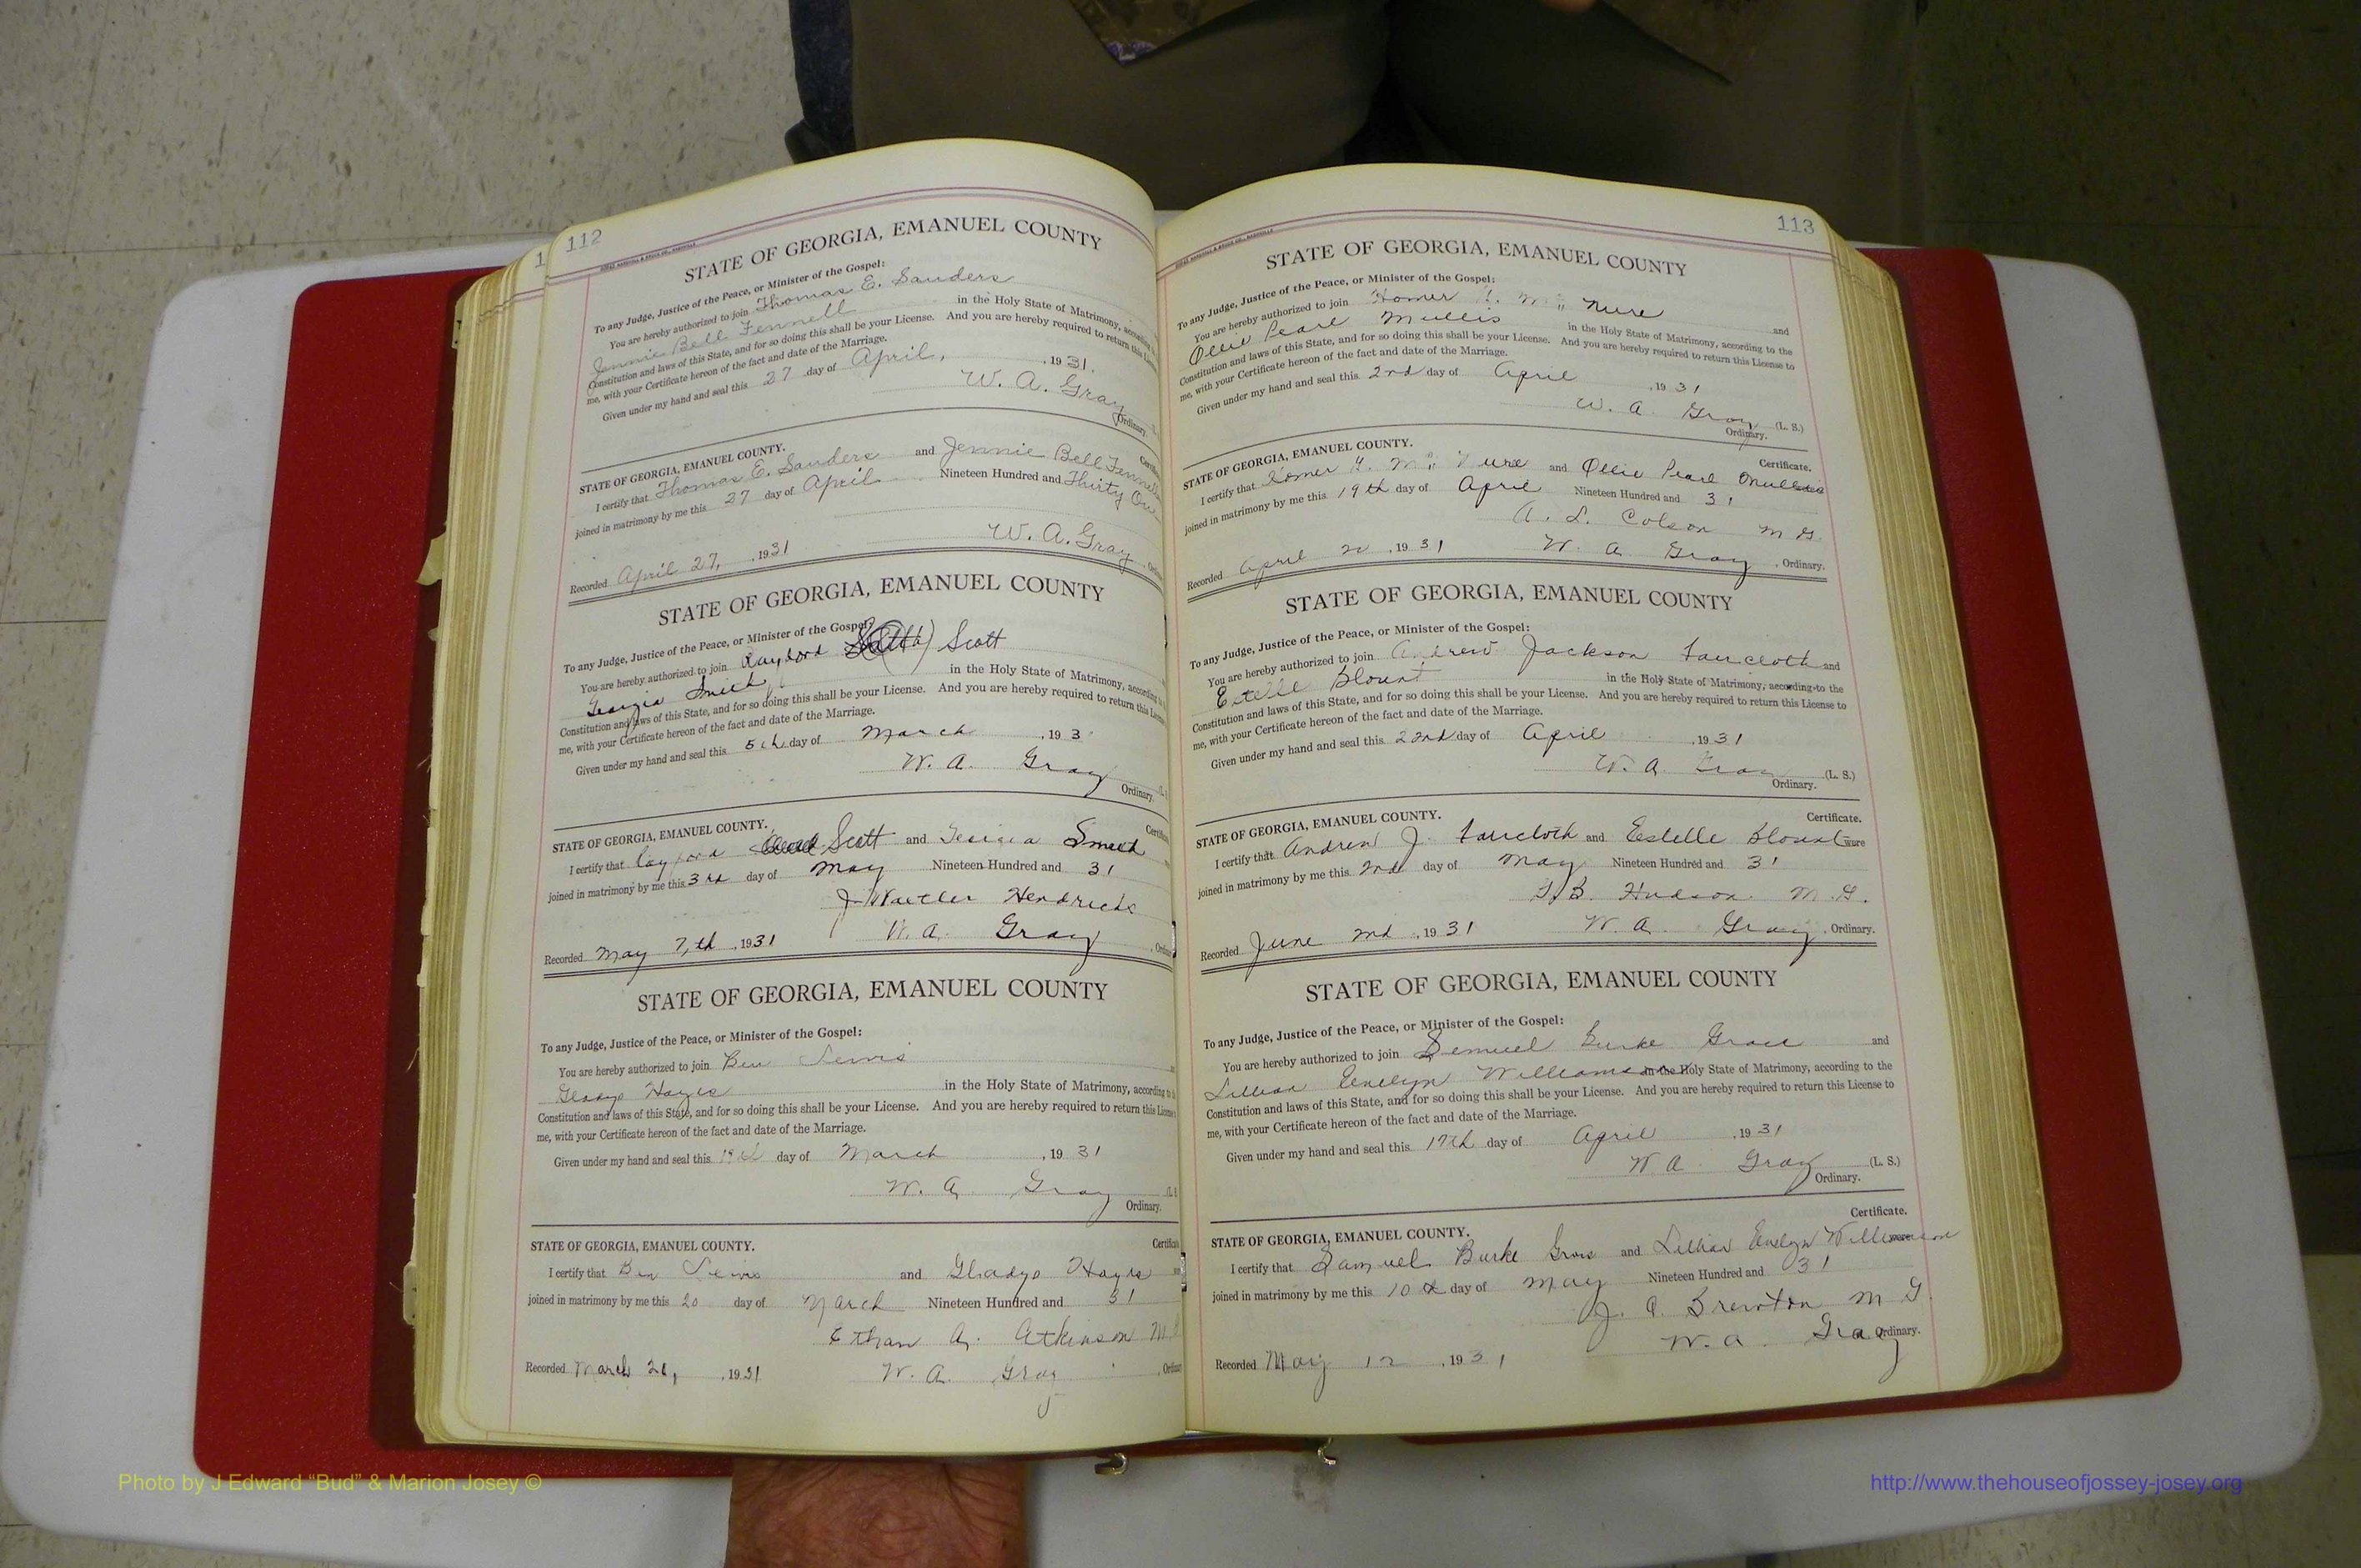 112
STATE OF GEORGIA, EMANUEL COUNTY
To any Judge, Justice of the Peace, or Minister of the Gospel:
You are hereby authorized to join Thomas E. Sanders
Jennie Bell Fennell in the Holy State of Matrimony, according
Constitution and laws of this State, and for so doing this shall be your License. And you are hereby required to return this
me, with your Certificate hereon of the fact and date of the Marriage.
Given under my hand and seal this 27 day of April, , 1931.
W. A. Gray
Ordinary.
STATE OF GEORGIA, EMANUEL COUNTY.
I certify that Thomas E. Sanders and Jennie Bell Fennell
joined in matrimony by me this 27 day of April Nineteen Hundred and Thirty One
W. A. Gray
Recorded April 27, , 1931
STATE OF GEORGIA, EMANUEL COUNTY
To any Judge, Justice of the Peace, or Minister of the Gospel:
You are hereby authorized to join Rayford Scott
Georgia Smith in the Holy State of Matrimony, according
Constitution and laws of this State, and for so doing this shall be your License. And you are hereby required to return this
me, with your Certificate hereon of the fact and date of the Marriage.
Given under my hand and seal this 5th day of March , 193
W. A. Gray
Ordinary.
STATE OF GEORGIA, EMANUEL COUNTY.
I certify that Scott and
joined in matrimony by me this 3rd day of May Nineteen Hundred and 31
J. Walter Hendricks
W. A. Gray
Recorded May 7,th , 1931
STATE OF GEORGIA, EMANUEL COUNTY
To any Judge, Justice of the Peace, or Minister of the Gospel:
You are hereby authorized to join Ben Lewis
Gladys Hayes in the Holy State of Matrimony, according
Constitution and laws of this State, and for so doing this shall be your License. And you are hereby required to return this
me, with your Certificate hereon of the fact and date of the Marriage.
Given under my hand and seal this day of March , 1931
W. A. Gray
Ordinary.
STATE OF GEORGIA, EMANUEL COUNTY.
I certify that Ben Lewis and Gladys Hayes
joined in matrimony by me this 20 day of March Nineteen Hundred and 31
Ethan A. Atkinson
Recorded March , 1931 W. A. Gray
113
STATE OF GEORGIA, EMANUEL COUNTY
To any Judge, Justice of the Peace, or Minister of the Gospel:
You are hereby authorized to join Homer and
Ollie Pearl Mullis in the Holy State of Matrimony, according to the
Constitution and laws of this State, and for so doing this shall be your License. And you are hereby required to return this License to
me, with your Certificate hereon of the fact and date of the Marriage.
Given under my hand and seal this 2nd day of April , 1931
W. A. Gray (L. S.)
Ordinary.
STATE OF GEORGIA, EMANUEL COUNTY. Certificate.
I certify that Homer H. and Ollie Pearl Mullis
joined in matrimony by me this 19th day of April Nineteen Hundred and 31
A. L. Colson M G.
Recorded April 20 , 1931 W. A. Gray , Ordinary.
STATE OF GEORGIA, EMANUEL COUNTY
To any Judge, Justice of the Peace, or Minister of the Gospel:
You are hereby authorized to join Andrew Jackson Faircloth and
Estelle Blount in the Holy State of Matrimony, according to the
Constitution and laws of this State, and for so doing this shall be your License. And you are hereby required to return this License to
me, with your Certificate hereon of the fact and date of the Marriage.
Given under my hand and seal this 22nd day of April , 1931
W. A. Gray (L. S.)
Ordinary.
STATE OF GEORGIA, EMANUEL COUNTY. Certificate.
I certify that Andrew J. Faircloth and Estelle Blount were
joined in matrimony by me this 2nd day of May Nineteen Hundred and 31
Hudson M.G.
Recorded June 2nd , 1931 W. A. Gray , Ordinary.
STATE OF GEORGIA, EMANUEL COUNTY
To any Judge, Justice of the Peace, or Minister of the Gospel:
You are hereby authorized to join Samuel Burke and
Lillian Evelyn Williamson in the Holy State of Matrimony, according to the
Constitution and laws of this State, and for so doing this shall be your License. And you are hereby required to return this License to
me, with your Certificate hereon of the fact and date of the Marriage.
Given under my hand and seal this 17th day of April , 1931
W. A. Gray (L. S.)
Ordinary.
STATE OF GEORGIA, EMANUEL COUNTY. Certificate.
I certify that Samuel Burke and Lillian Evelyn Williamson
joined in matrimony by me this 10th day of May Nineteen Hundred and 31
J. A. Brewton M G.
W. A. Gray Ordinary.
Recorded May 12 , 1931
Photo by J Edward “Bud” & Marion Josey ©
http://www.thehouseofjossey-josey.org